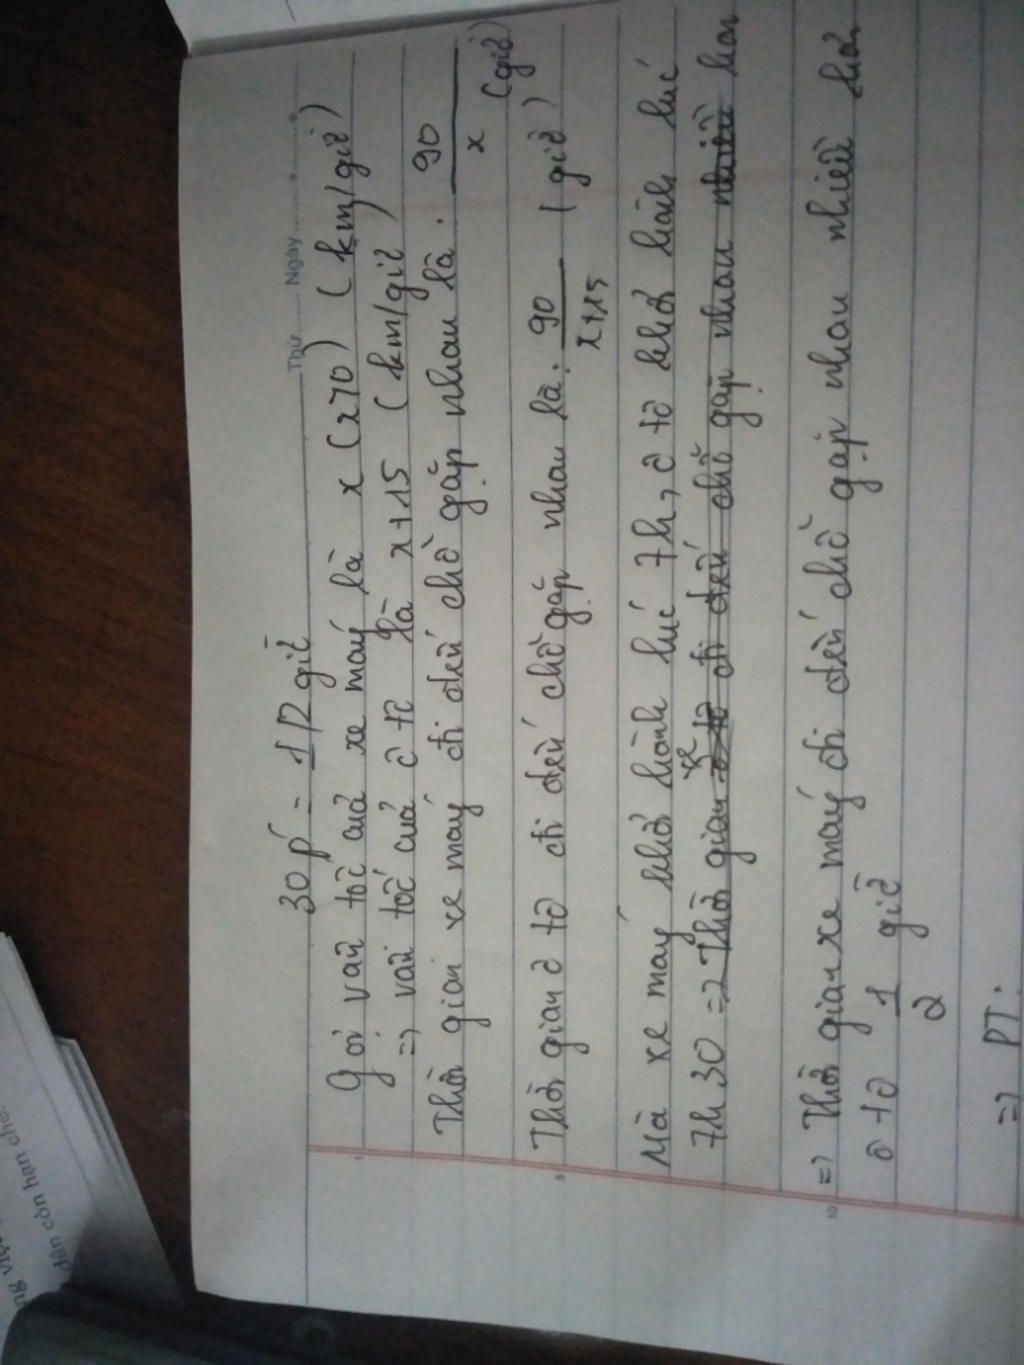 Thứ ........ Ngày ........
30 p' = 1/2 giờ
Gọi vận tốc của xe máy là x (x>0) (km/giờ)
=> vận tốc của ô tô là x+15 (km/giờ)
Thời gian xe máy đi đến chỗ gặp nhau là: 90/x (giờ)
Thời gian ô tô đi đến chỗ gặp nhau là: 90/x+15 (giờ)
Mà xe máy khởi hành lúc 7h, ô tô khởi hành lúc
7h30 => Thời gian xe ô tô đi đến chỗ gặp nhau nhiều hơn
=> Thời gian xe máy đi đến chỗ gặp nhau nhiều hơn
ô tô 1/2 giờ
=> PT:
dẫn còn hạn chế.